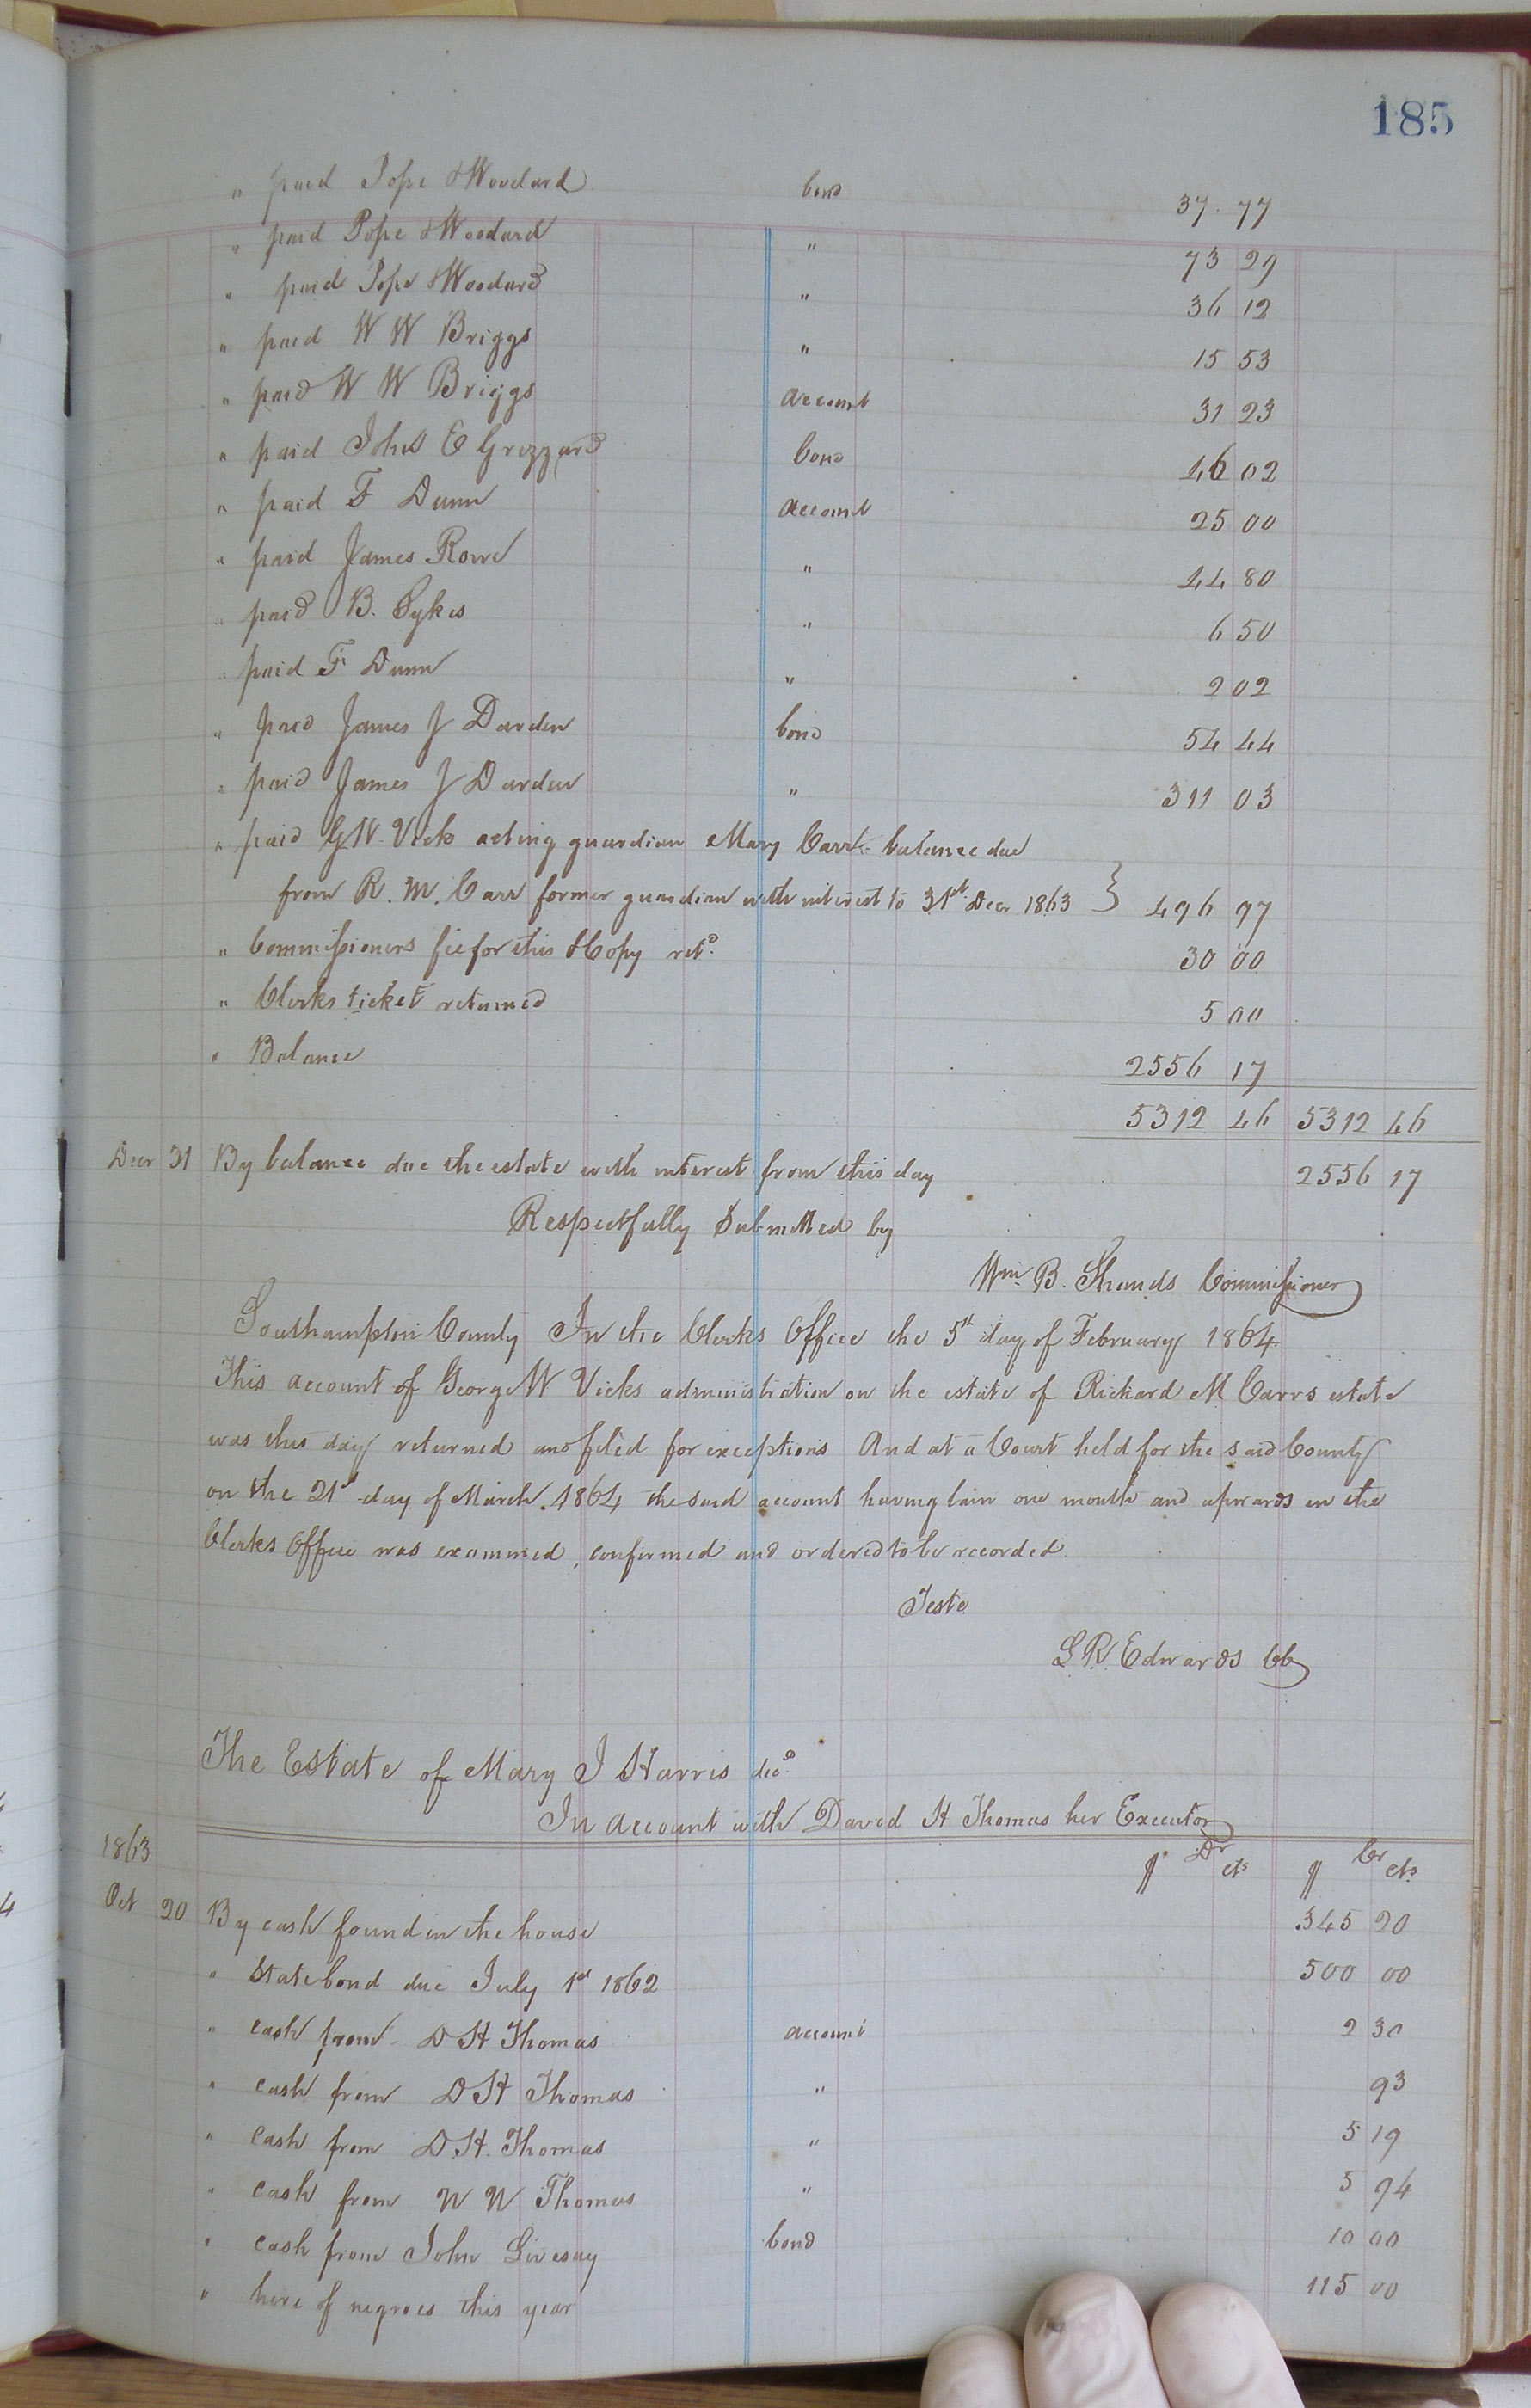 185
" paid Pope & Woodard bond 37.77
" paid Pope & Woodard " 73 29
" paid Pope & Woodard " 36 12
" paid W W Briggs " 15 53
" paid W W Briggs account 31 23
" paid John E Grizzard bond 46 02
" paid F Dunn account 25 00
" paid James Rowe " 44 80
" paid B. Sykes " 6 50
" paid F Dunn " 2 02
" paid James J Darden bond 54 44
" paid James J Darden " 311 03
" paid G W Vick acting guardian Mary Carr balance due
from R. M. Carr former guardian with interest to 31st Decr 1863 } 496 97
" Commissioners fee for this & Copy retd. 30 00
" Clerks ticket returned 5 00
" Balance 2556 17
5312 46 5312 46
Decr 31 By balance due the estate with interest from this day 2556 17
Respectfully Submitted by
Wm B. Shands Commissioner
Southampton County In the Clerks Office the 5th day of February 1864
This account of George W Vicks administration on the estate of Richard M Carrs estate
was this day returned and filed for exceptions And at a Court held for the said County
on the 21st day of March 1864 the said account having lain one month and upwards in the
Clerks Office was examined, confirmed and ordered to be recorded.
Teste
L R Edwards CC
The Estate of Mary J Harris decd.
In account with David H Thomas her Executor
1863 $ Dr cts $ Cr cts
Oct 20 By cash found in the house 345 20
" State bond due July 1st 1862 500 00
" cash from D H Thomas account 2 30
" cash from D H Thomas " 93
" cash from D. H. Thomas " 5 19
" cash from W W Thomas " 5 94
" cash from John Livesay bond 10 00
" hire of negroes this year 115 00